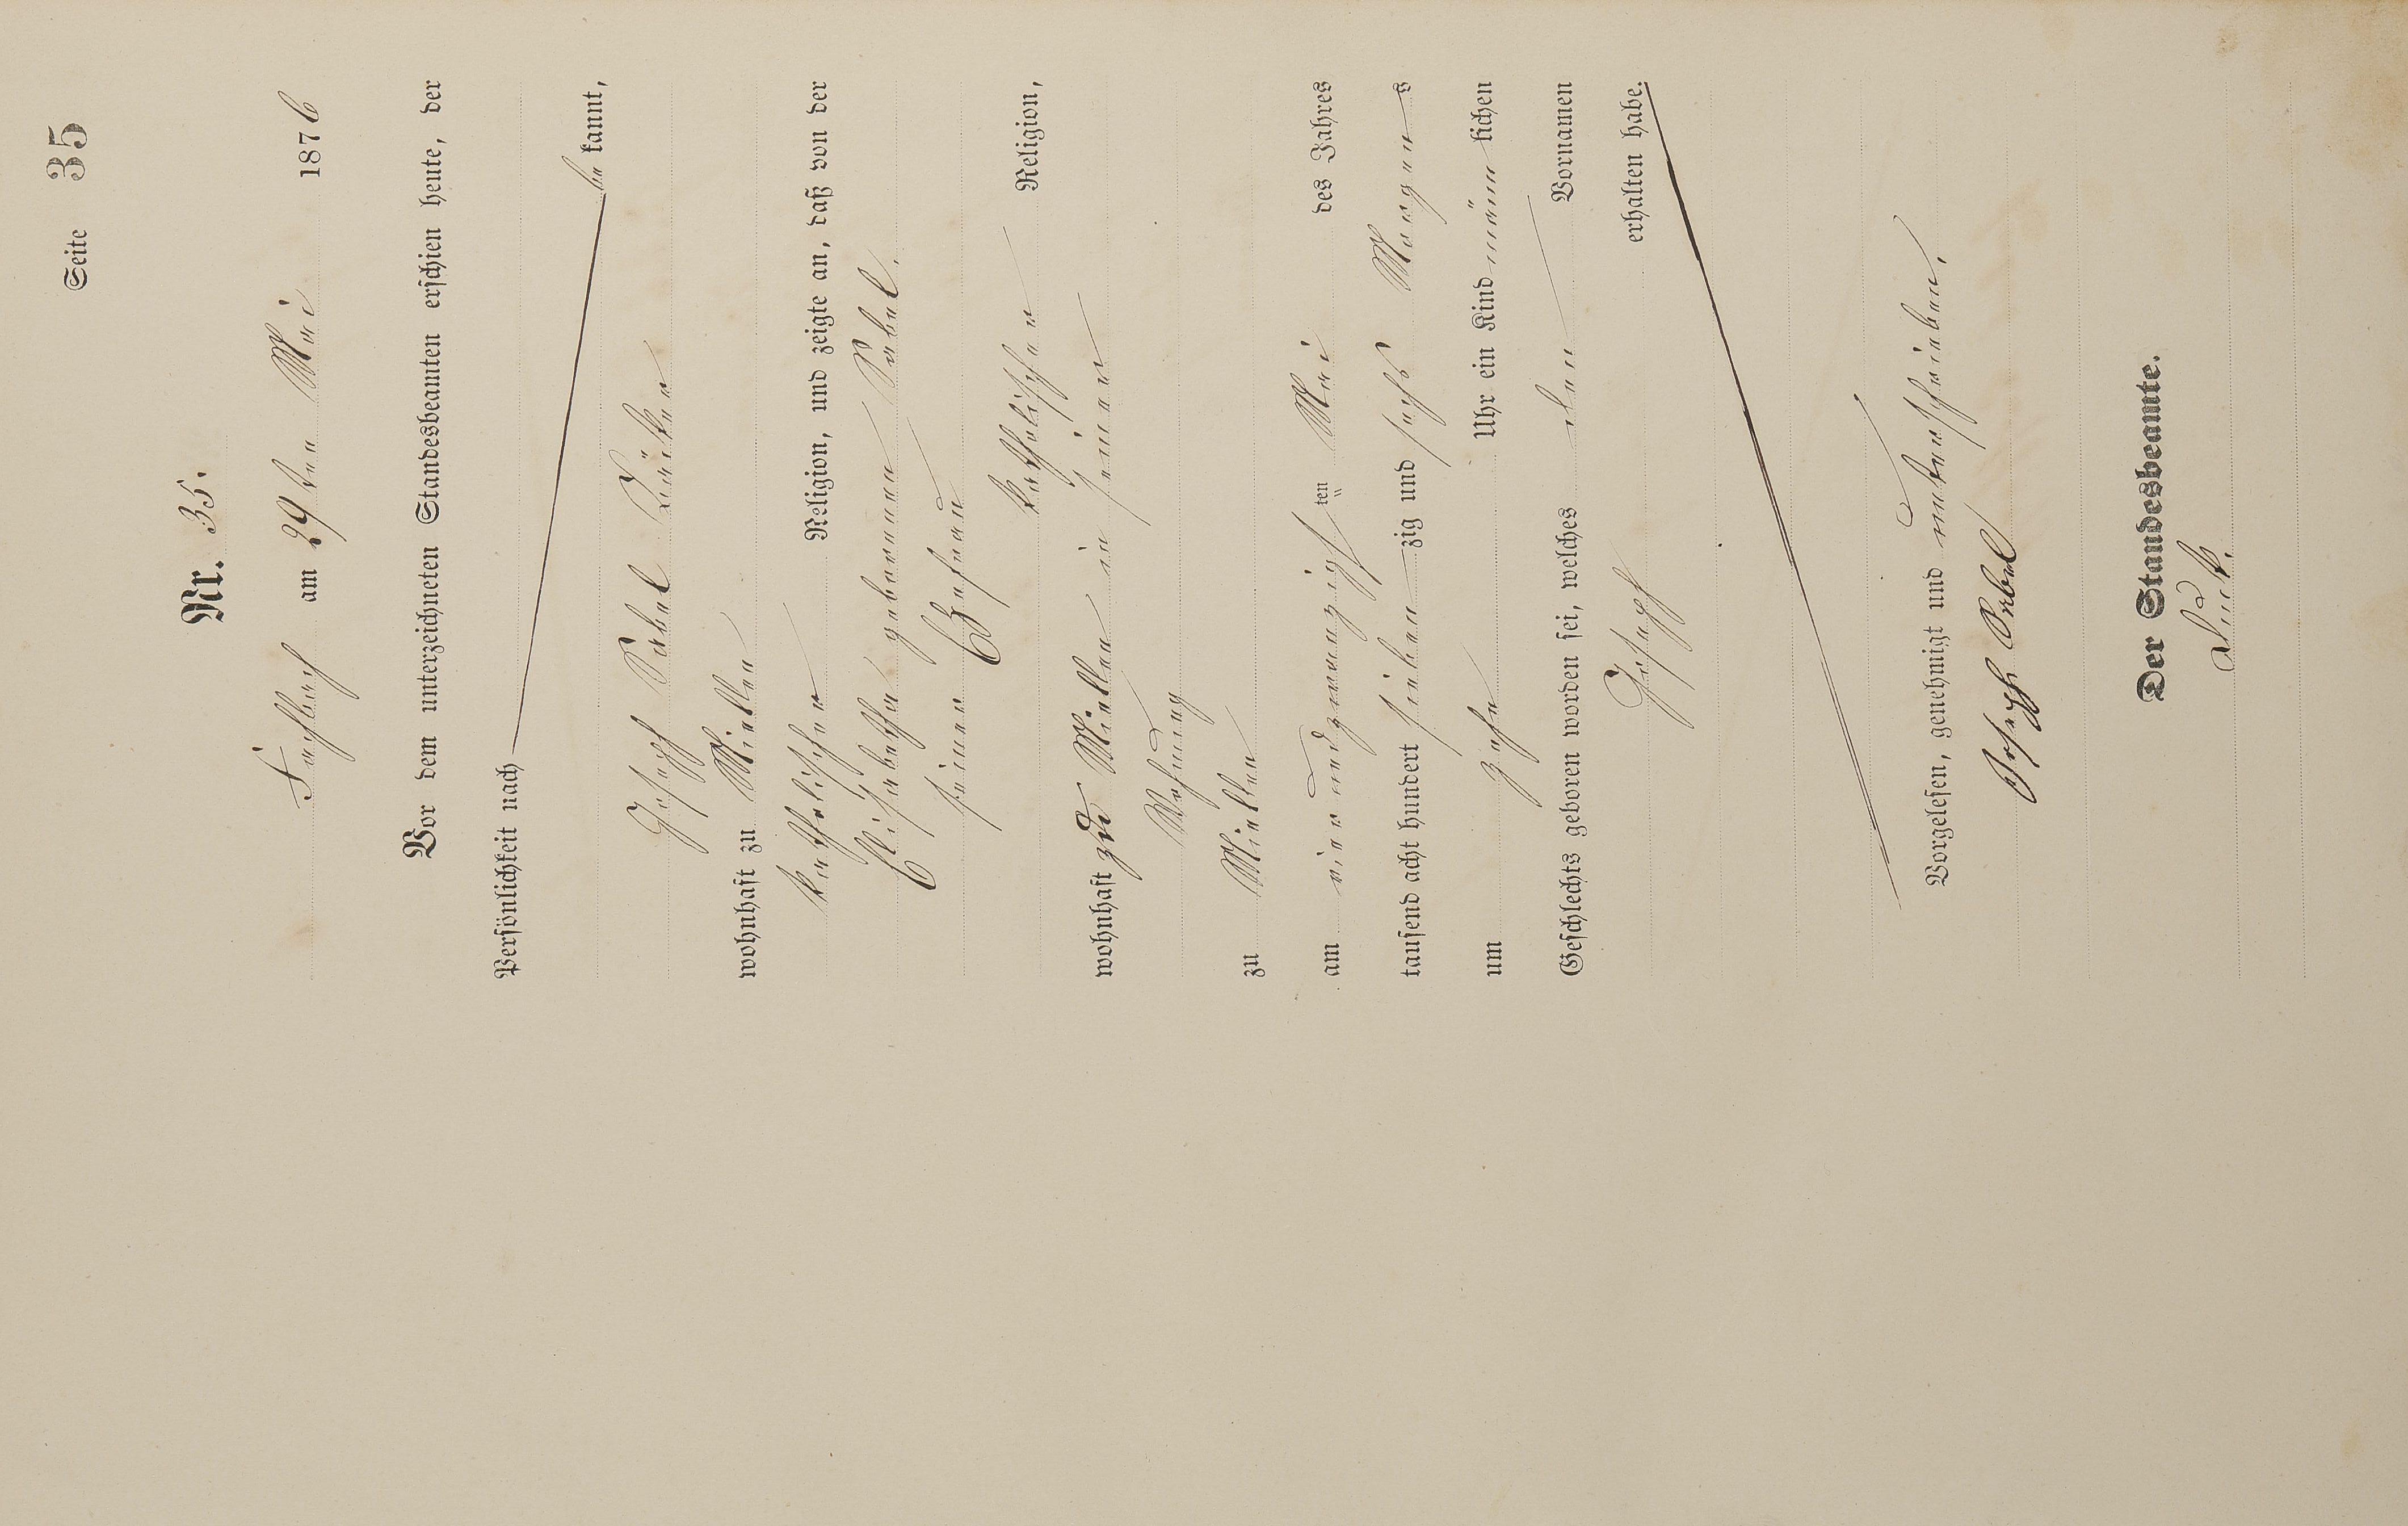 Seite 35
Nr. 35.
Fachbach am 29ten Mai 1876
Vor dem unterzeichneten Standesbeamten erschien heute, der
Persönlichkeit nach
be kannt,
Joseph Sabel
wohnhaft zu Miellen
katholischer Religion, und zeigte an, daß von der
Elisabetha geborenen Sabel,
seiner Ehefrau
katholischer Religion,
wohnhaft zu Miellen in seiner
Wohnung
zu Miellen
am vier und zwanzigsten Mai des Jahres
tausend acht hundert sieben zig und sechs Morgens
um zehn Uhr ein Kind männ lichen
Geschlechts geboren worden sei, welches den Vornamen
Joseph
erhalten habe.
Vorgelesen, genehmigt und unterschrieben,
Joseph Sabel
Der Standesbeamte.